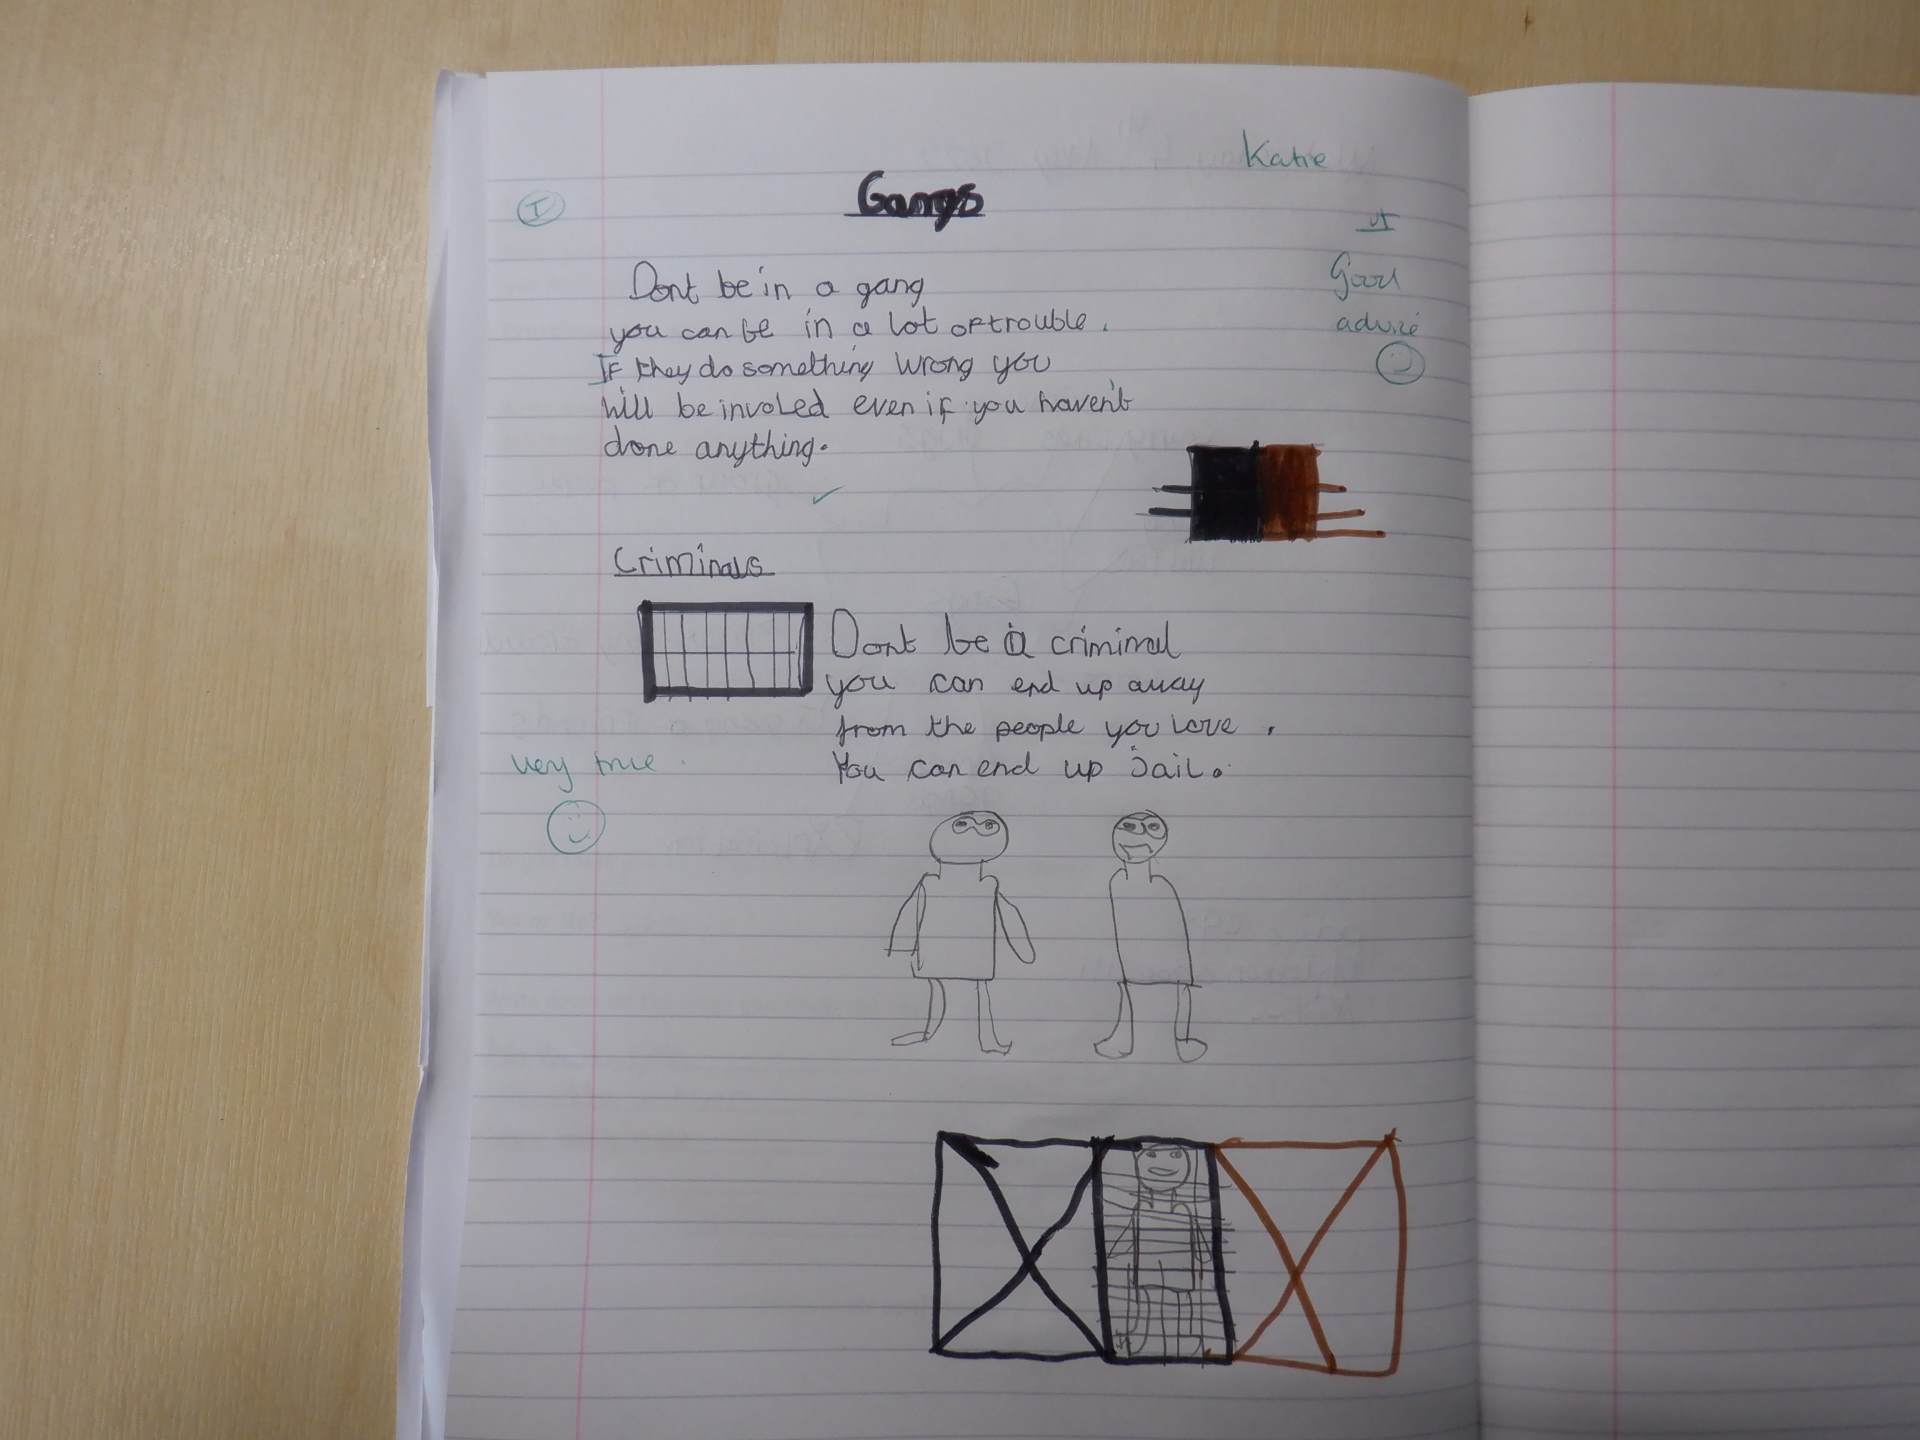 Katie
I
Gangs
Dont be in a gang
you can be in a lot of trouble.
If they do something wrong you
will be involed even if you haven't
done anything.
Good
advice
Criminals
Dont be a criminal
you can end up away
from the people you love.
You can end up Jail.
very true.